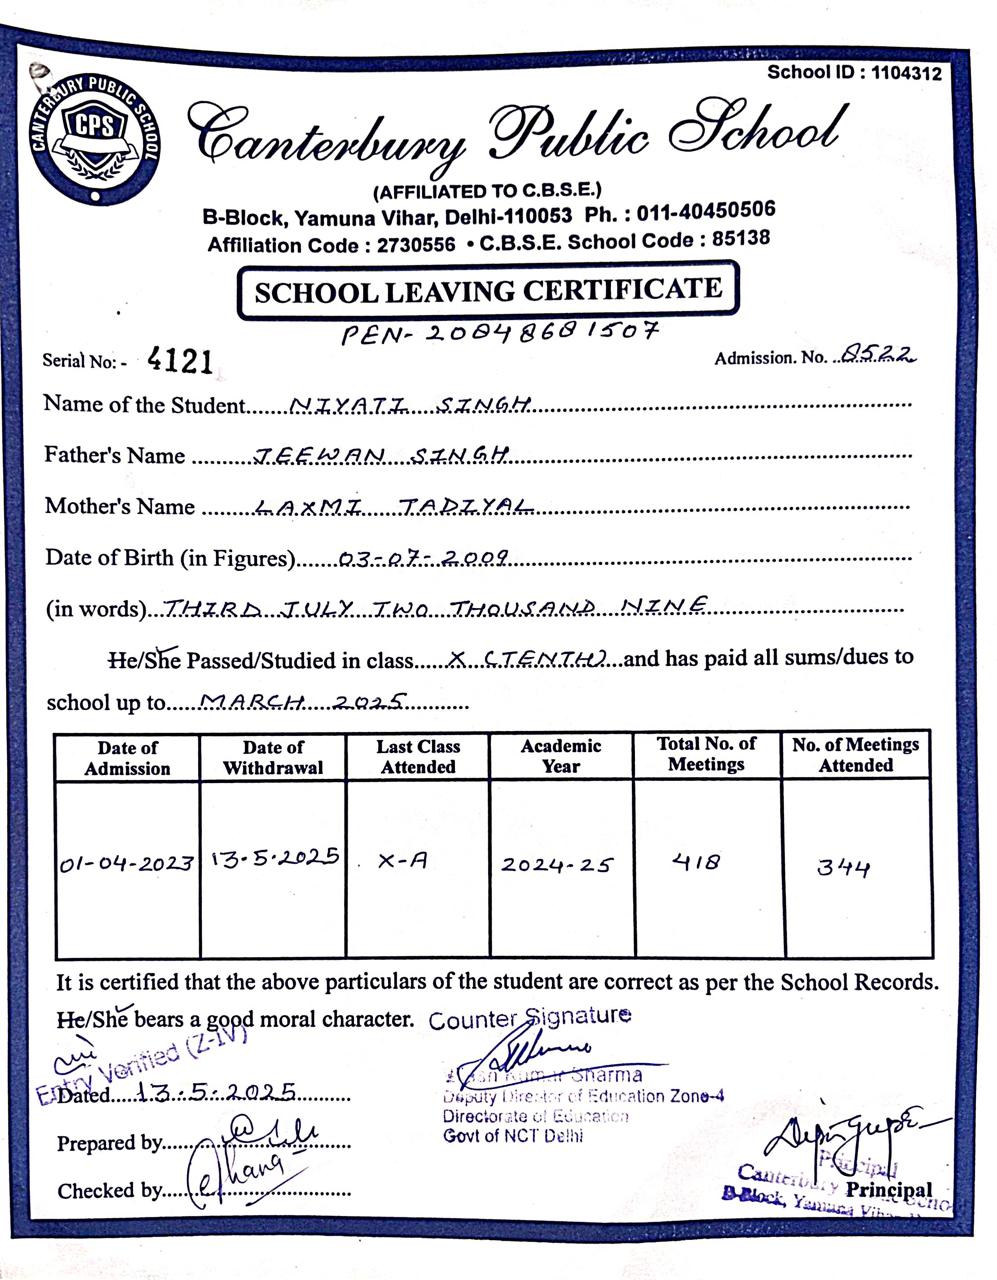 School ID : 1104312
CANTERBURY PUBLIC SCHOOL
CPS
Canterbury Public School
(AFFILIATED TO C.B.S.E.)
B-Block, Yamuna Vihar, Delhi-110053 Ph. : 011-40450506
Affiliation Code : 2730556 • C.B.S.E. School Code : 85138
SCHOOL LEAVING CERTIFICATE
PEN- 20848681507
Serial No:- 4121 Admission. No. 8522
Name of the Student NIYATI SINGH
Father's Name JEEWAN SINGH
Mother's Name LAXMI TADIYAL
Date of Birth (in Figures) 03-07-2009
(in words) THIRD JULY TWO THOUSAND NINE
He/She Passed/Studied in class X (TENTH) and has paid all sums/dues to
school up to MARCH 2025
Date of Admission Date of Withdrawal Last Class Attended Academic Year Total No. of Meetings No. of Meetings Attended
01-04-2023 13.5.2025 X-A 2024-25 418 344
It is certified that the above particulars of the student are correct as per the School Records.
He/She bears a good moral character. Counter Signature
Entry Verified (Z-IV)
Kumar Sharma
Dated 13.5.2025 Deputy Director of Education Zone-4
Directorate of Education
Prepared by Govt of NCT Delhi
Principal
Checked by
Principal
B-Block, Yamuna